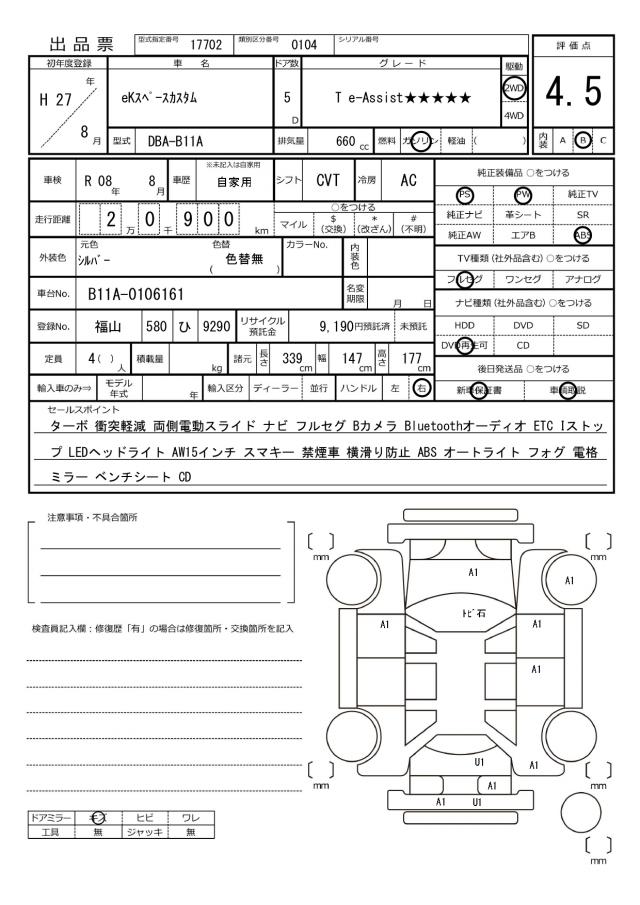 出品票 型式指定番号 17702 類別区分番号 0104 シリアル番号
評価点
4.5
内装 A B C
初年度登録 車名 ドア数 グレード 駆動
H 27 年 8 月
eKスペースカスタム 5 D T e-Assist★★★★★ 2WD
4WD
型式 DBA-B11A 排気量 660 cc 燃料 ガソリン 軽油 ( )
車検 R 08 年 8 月 車歴 ※未記入は自家用 自家用 シフト CVT 冷房 AC
走行距離 2 万 0 千 9 0 0 km
○をつける
マイル $ (交換) * (改ざん) # (不明)
外装色 元色 シルバー 色替 ( 色替無 ) カラーNo. 内装色
車台No. B11A-0106161 名変期限 月 日
登録No. 福山 580 ひ 9290 リサイクル預託金 9,190円預託済 未預託
定員 4( ) 人 積載量 kg 諸元 長さ 339 cm 幅 147 cm 高さ 177 cm
輸入車のみ⇒ モデル年式 年 輸入区分 ディーラー 並行 ハンドル 左 右
純正装備品 ○をつける
PS PW 純正TV
純正ナビ 革シート SR
純正AW エアB ABS
TV種類(社外品含む) ○をつける
フルセグ ワンセグ アナログ
ナビ種類(社外品含む) ○をつける
HDD DVD SD
DVD再生可 CD
後日発送品 ○をつける
新車保証書 車輌取説
セールスポイント
ターボ 衝突軽減 両側電動スライド ナビ フルセグ Bカメラ Bluetoothオーディオ ETC Iストッ
プ LEDヘッドライト AW15インチ スマキー 禁煙車 横滑り防止 ABS オートライト フォグ 電格
ミラー ベンチシート CD
注意事項・不具合箇所
検査員記入欄：修復歴「有」の場合は修復箇所・交換箇所を記入
ドアミラー キズ ヒビ ワレ
工具 無 ジャッキ 無
mm
mm
A1
A1
トビ石
A1
A1
A1
U1
A1
A1
A1 U1
mm
mm
mm